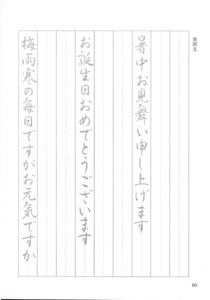 実用文
暑中お見舞い申し上げます
お誕生日おめでとうございます
梅雨寒の毎日ですがお元気ですか
60